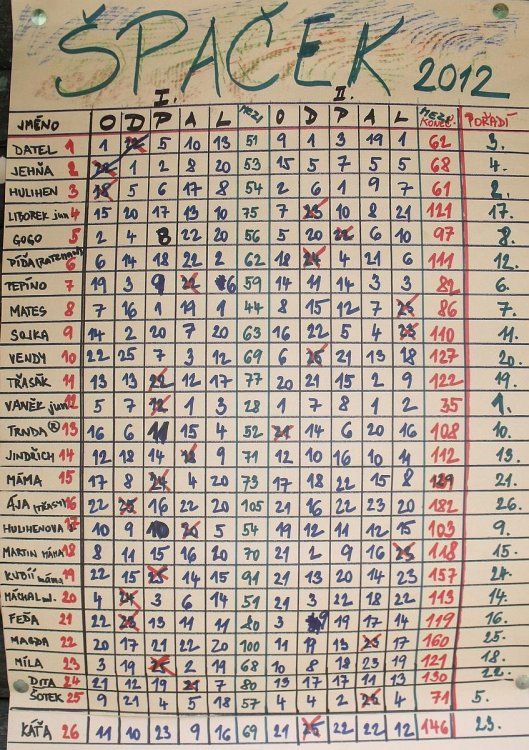 ŠPAČEK 2012
I. II.
JMÉNO O D P A L MEZI O D P A L KONEC. POŘADÍ
DATEL 1 1 5 10 13 51 9 1 3 19 1 62 3.
JEHŇA 2 1 2 8 20 53 15 5 7 5 5 68 4.
HULIHEN 3 18 5 6 17 8 54 2 6 1 9 7 61 2.
LIBOREK jun 4 15 20 17 13 10 75 7 23 10 8 21 121 17.
GOGO 5 2 4 8 22 20 56 5 20 22 6 10 97 8.
PÍĎA 6 6 14 18 22 2 62 18 24 4 21 6 111 12.
PEPINO 7 19 3 9 22 6 59 14 11 14 3 3 82 6.
MATES 8 7 16 1 19 1 44 8 15 12 7 23 86 7.
SOJKA 9 14 2 20 7 20 63 16 22 5 4 23 110 11.
VENDY 10 22 25 7 3 12 69 6 25 21 13 18 127 20.
TŘASÁK 11 13 13 22 12 17 77 20 21 15 2 9 122 19.
VANĚK jun 12 5 7 12 1 3 28 1 7 8 1 2 35 1.
TRNDA 13 16 6 11 15 4 52 21 14 6 20 16 108 10.
JINDŘICH 14 12 18 14 9 71 12 10 16 10 11 112 13.
MÁMA 15 17 8 24 4 20 73 17 18 22 15 8 129 21.
ÁJA 16 22 25 16 22 20 105 21 16 22 23 20 182 26.
HULIHENOVA 17 10 9 10 20 5 54 19 12 11 12 15 103 9.
MARTIN 18 8 11 15 16 20 70 21 2 9 16 118 15.
KUBÍJ 19 22 15 25 14 15 91 21 13 20 14 23 157 24.
MÁCHAL ml. 20 4 24 3 6 14 51 21 3 22 18 22 113 14.
FEĎA 21 22 23 13 11 11 80 3 9 17 14 7 119 16.
MAGDA 22 20 17 21 22 20 100 11 19 13 23 17 160 25.
MÍLA 23 3 19 25 2 19 68 10 8 18 23 19 121 18.
DITA 24 21 12 19 21 7 80 13 17 17 11 13 130 22.
ŠOTEK 25 9 21 4 5 18 57 4 4 2 25 4 71 5.
KÁŤA 26 11 10 23 9 16 69 21 25 22 22 12 146 23.